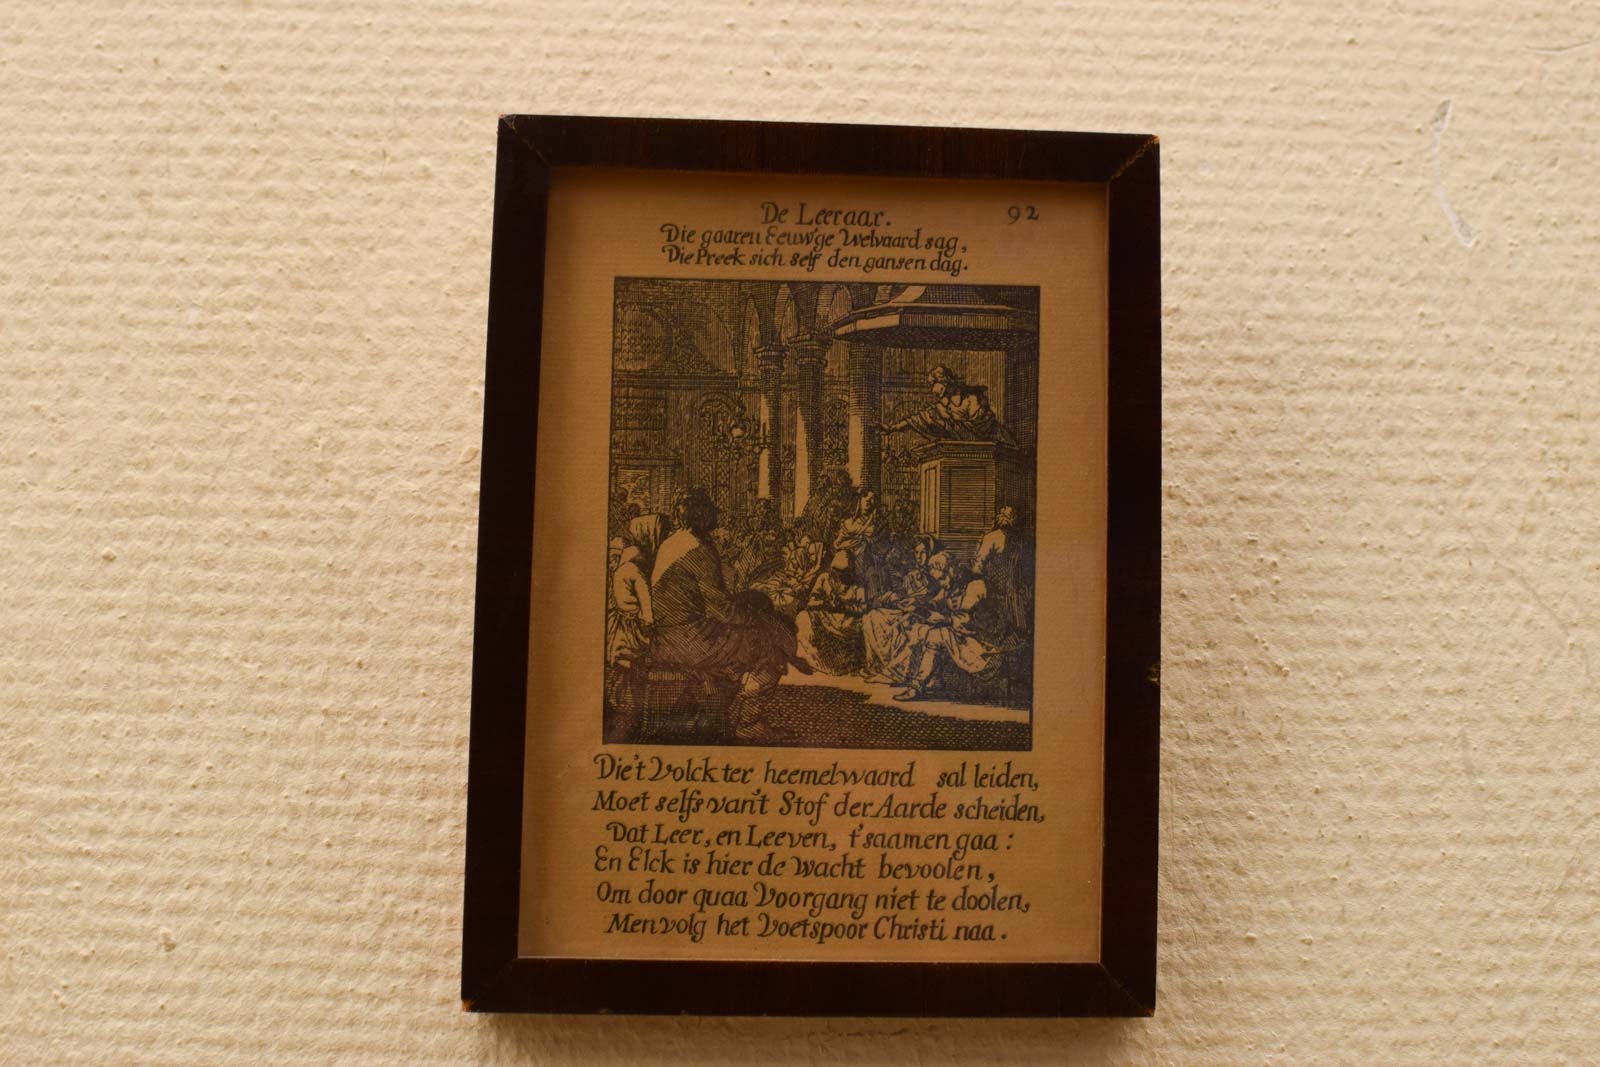 De Leeraar. 92
Die gaaren Eeuw'ge Welvaard sag,
Die Preek sich self den gansen dag.
Die't Volck ter heemelwaard sal leiden,
Moet selfs van't Stof der Aarde scheiden,
Dat Leer, en Leeven, t'saamen gaa:
En Elck is hier de wacht bevoolen,
Om door quaa Voorgang niet te doolen,
Men volg het Voetspoor Christi naa.